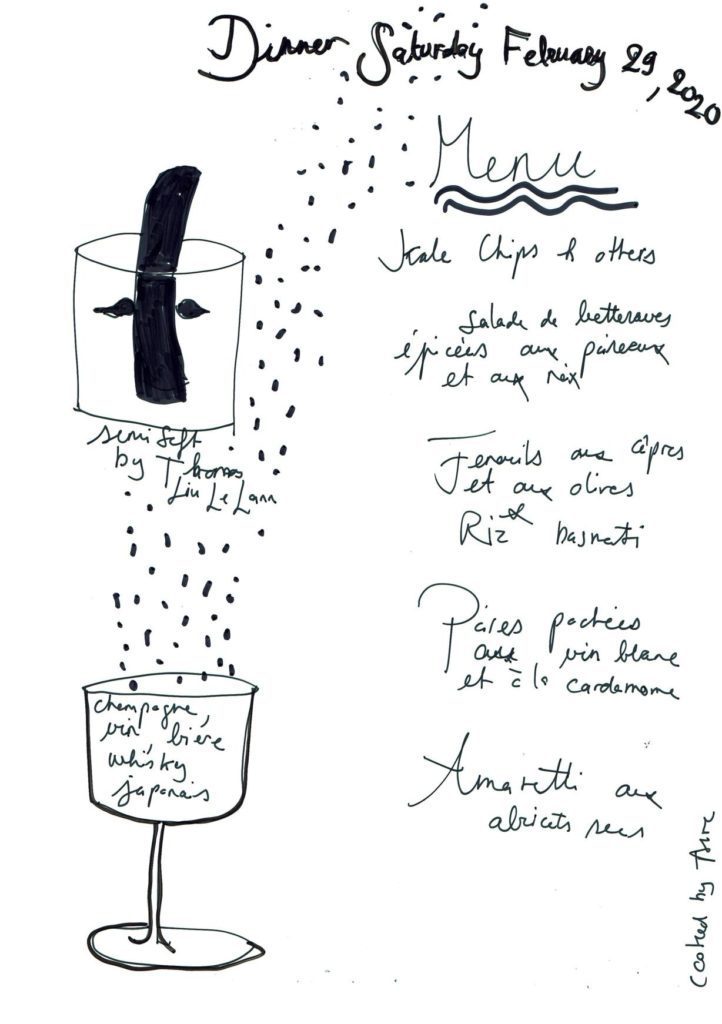 Dinner Saturday February 29, 2020
Menu
Kale Chips & others
Salade de betteraves
épicées aux poireaux
et aux noix
Fenouils aux câpres
et aux olives
Riz basmati
Poires pochées
aux vin blanc
et à la cardamome
Amaretti aux
abricots secs
semi soft
by Thomas
Liu Le Lann
champagne,
vin, bière
whisky
japonais
cooked by